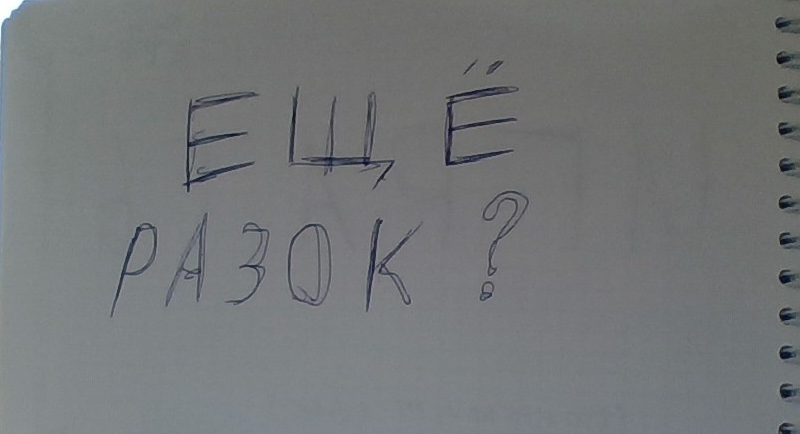 ЕЩЁ
РАЗОК?